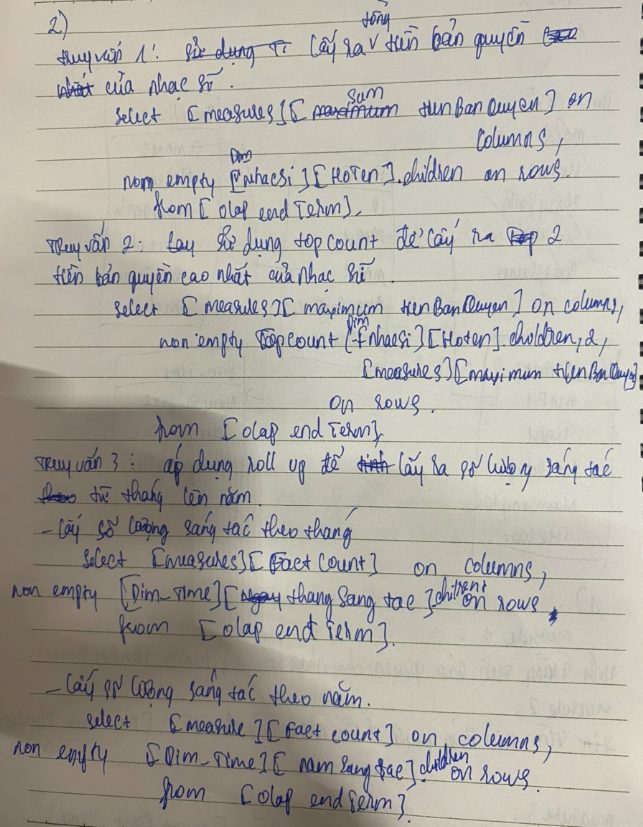 2)
truy vấn 1: sử dụng lấy ra tổng tiền bản quyền
nhất của nhạc sĩ.
select [measures][maximum sum tienBanQuyen] on
columns,
non empty [Dim nhacsi][Hoten].children on rows.
from [olap end Term].
Truy vấn 2: sử dụng topcount để lấy ra 2
tiền bản quyền cao nhất của nhạc sĩ.
select [measures][maximum tienBanQuyen] on columns,
non empty topcount [Dim nhacsi][Hoten].children, 2,
[measures][maximum tienBanQuyen]
on rows.
from [olap end Term]
Truy vấn 3: áp dụng roll up để tính lấy ra số lượng sáng tác
theo từ tháng lên năm.
- Lấy số lượng sáng tác theo tháng
select [measures][Fact Count] on columns,
non empty [Dim_Time][Ngay thang sang tac].children on rows.
from [olap end Term].
- Lấy số lượng sáng tác theo năm.
select [measure][Fact count] on columns,
non empty [Dim_Time][nam sang tac].children on rows.
from [olap end Term].